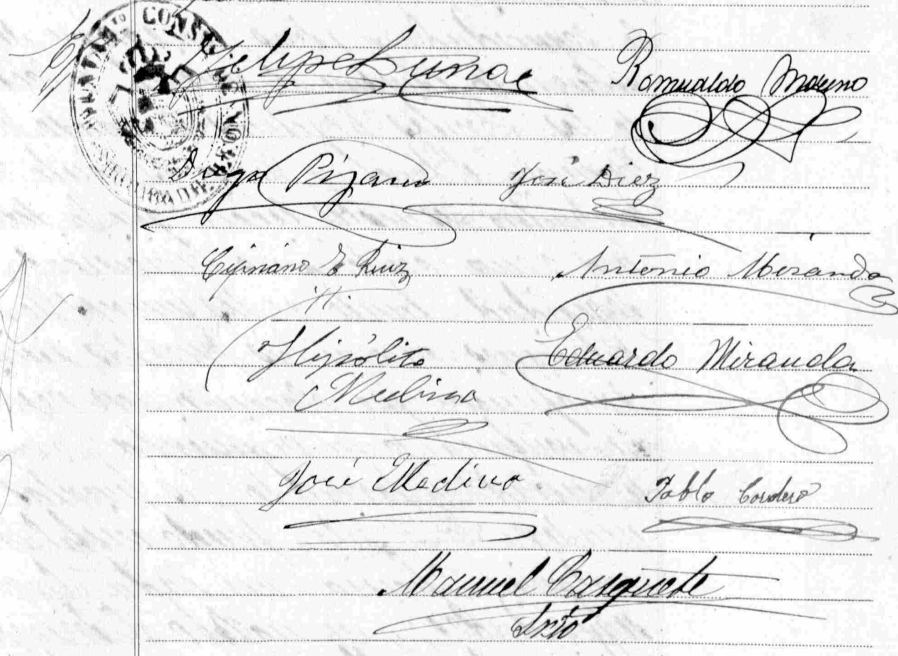 Felipe Luna Romualdo Moreno
Diego Pizarro José Diez
Cipriano E. Ruiz Antonio Miranda
H.
Hipólito Eduardo Miranda
Medina
José Medina Pablo Cordero
Manuel Casquete
Srio